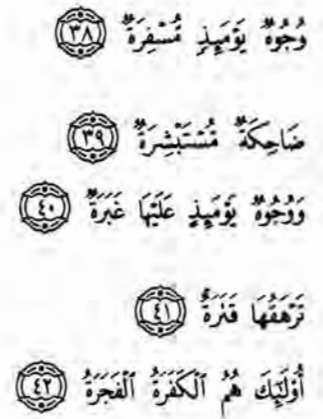 وُجُوهٌ يَوْمَئِذٍ مُّسْفِرَةٌ ٣٨
ضَاحِكَةٌ مُّسْتَبْشِرَةٌ ٣٩
وَوُجُوهٌ يَوْمَئِذٍ عَلَيْهَا غَبَرَةٌ ٤٠
تَرْهَقُهَا قَتَرَةٌ ٤١
أُوْلَئِكَ هُمُ ٱلْكَفَرَةُ ٱلْفَجَرَةُ ٤٢